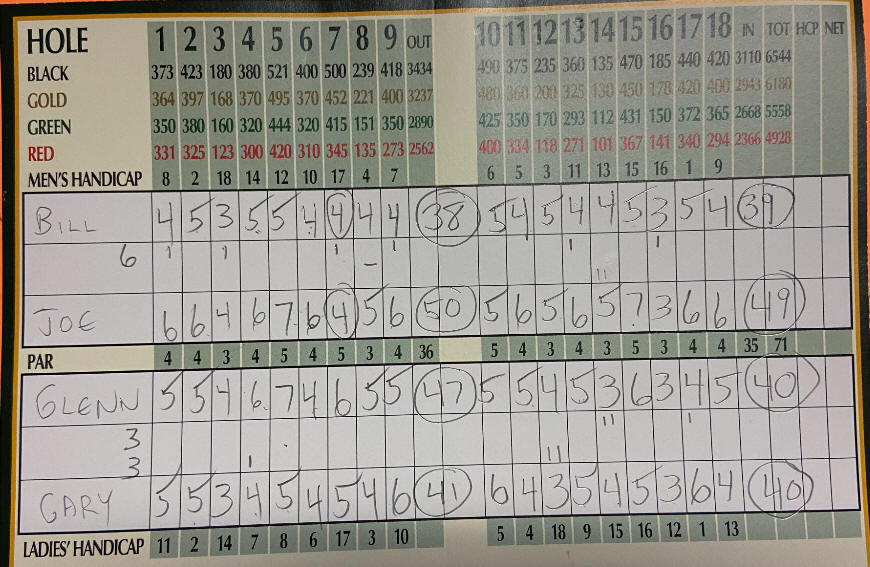 HOLE 1 2 3 4 5 6 7 8 9 OUT 10 11 12 13 14 15 16 17 18 IN TOT HCP NET
BLACK 373 423 180 380 521 400 500 239 418 3434 490 375 235 360 135 470 185 440 420 3110 6544
GOLD 364 397 168 370 495 370 452 221 400 3237 480 360 200 325 130 450 178 420 400 2943 6180
GREEN 350 380 160 320 444 320 415 151 350 2890 425 350 170 293 112 431 150 372 365 2668 5558
RED 331 325 123 300 420 310 345 135 273 2562 400 334 118 271 101 367 141 340 294 2366 4928
MEN'S HANDICAP 8 2 18 14 12 10 17 4 7 6 5 3 11 13 15 16 1 9
BILL 4 5 3 5 5 4 4 4 4 38 5 4 5 4 4 5 3 5 4 39
6
JOE 6 6 4 6 7 6 4 5 6 50 5 6 5 6 5 7 3 6 6 49
PAR 4 4 3 4 5 4 5 3 4 36 5 4 3 4 3 5 3 4 4 35 71
GLENN 5 5 4 6 7 4 6 5 5 47 5 5 4 5 3 6 3 4 5 40
3
3
GARY 5 5 3 4 5 4 5 4 6 41 6 4 3 5 4 5 3 6 4 40
LADIES' HANDICAP 11 2 14 7 8 6 17 3 10 5 4 18 9 15 16 12 1 13